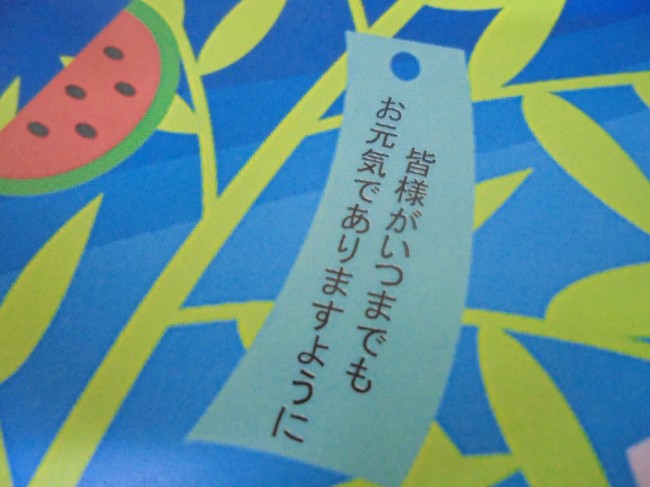 皆様がいつまでも
お元気でありますように